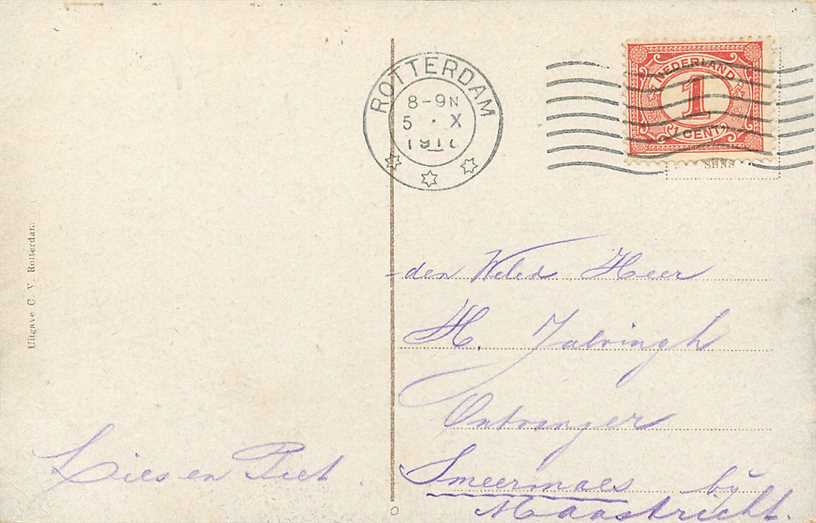 ROTTERDAM
8-9N
5 · X
NEDERLAND
1
1 CENT
Uitgave C. V. Rotterdam
den Weled Heer
H. Jalvingh
Ontvanger
Smeermaes by
Maastricht.
Lies en Piet.